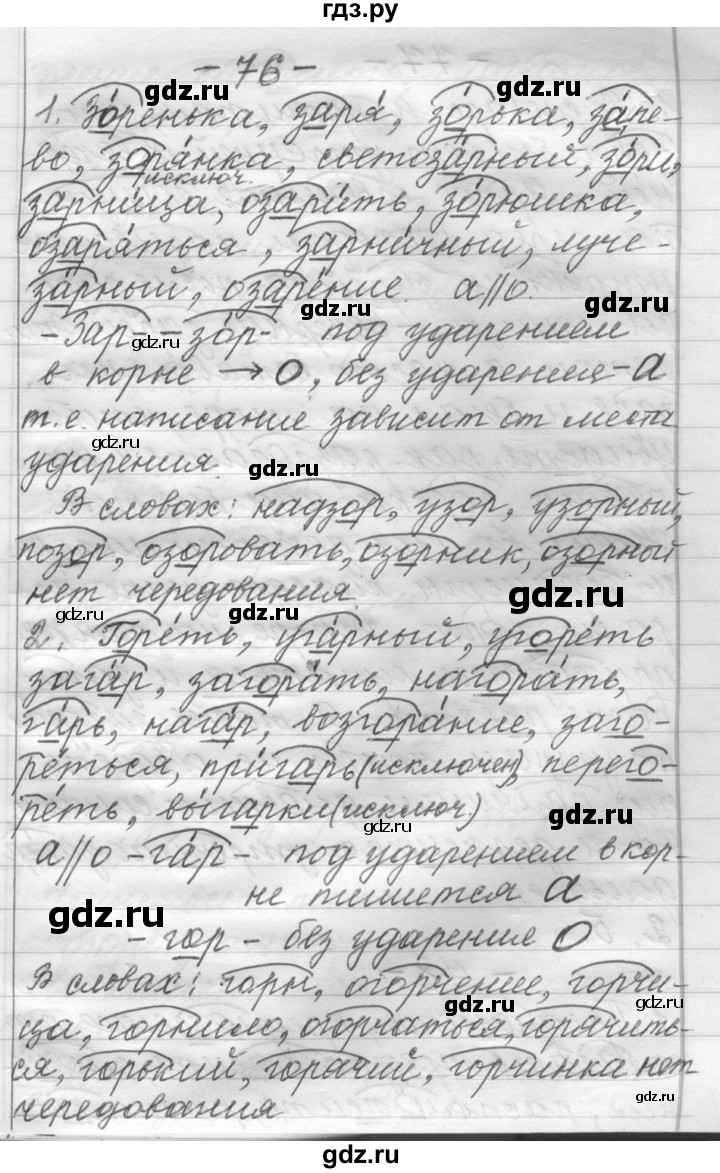 гдз.ру
– 76 –
gdz.ru
1. Зо́ренька, заря́, зо́рька, за́ре-
gdz.ru
gdz.ru
во, зоря́нка, светоза́рный, зо́ри,
gdz.ru
исключ.
зарни́ца, озари́ть, зо́рюшка,
gdz.ru
озаря́ться, зарни́чный, луче-
за́рный, озаре́ние. а//о.
gdz.ru
gdz.ru
-Зар- -зо́р- под ударением
gdz.ru
в корне → о, без ударения – а
т.е. написание зависит от места
gdz.ru
ударения.
gdz.ru
В словах: надзор, узор, узорный,
позор, озоровать, озорник, озорный
нет чередования.
gdz.ru
gdz.ru
gdz.ru
2. Горе́ть, уга́рный, угоре́ть
зага́р, загора́ть, нагора́ть,
га́рь, нага́р, возгора́ние, заго-
ре́ться, при́гарь (исключен), перего-
ре́ть, вы́гарки (исключ.)
gdz.ru
gdz.ru
а//о -га́р- под ударением в кор-
не пишется а
gdz.ru
- гор - без ударения о
В словах: горн, огорчение, горчи-
gdz.ru
gdz.ru
ца, горнило, огорчаться, горячить-
ся, горький, горячий, горчинка нет
gdz.ru
gdz.ru
чередования
gdz.ru